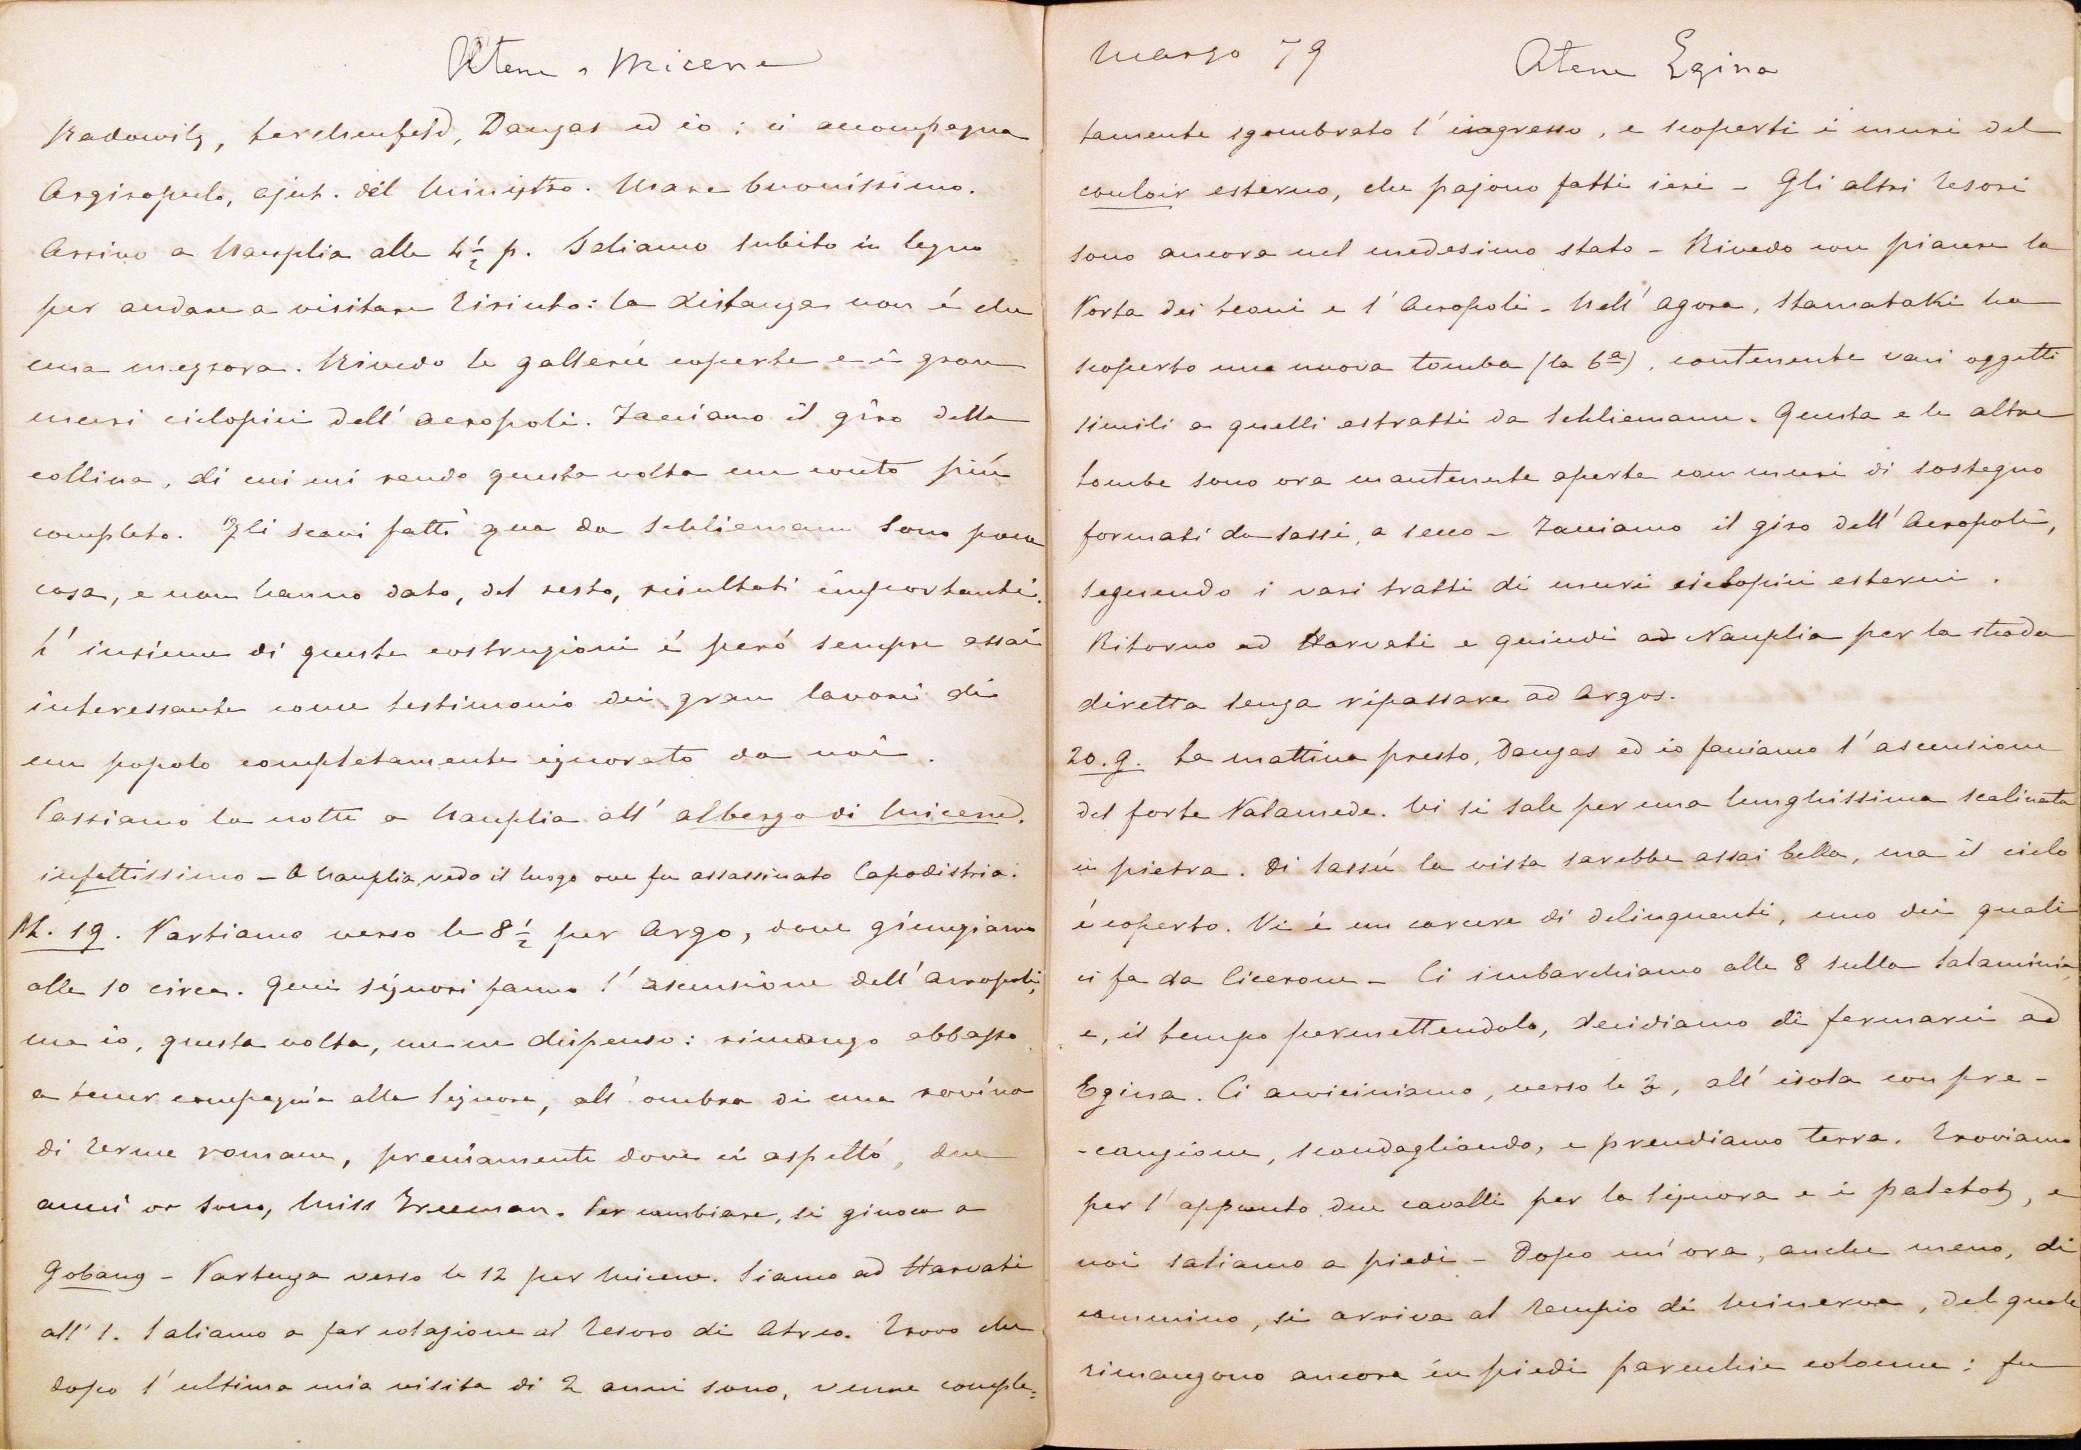 Atene a Micene
Radowitz, Lerchenfeld, Dangas ed io; ci accompagna
Argiropulo, ajut. del Ministro. Mare buonissimo.
Arrivo a Nauplia alle 4½ p. Saliamo subito in legno
per andare a visitare Tirinto: la distanza non é che
una mezzora. Rivedo le gallerie coperte e i gran
muri ciclopici dell' acropoli. Facciamo il giro della
collina, di cui mi rendo questa volta un conto più
completo. Gli scavi fatti qua da Schliemann sono poca
cosa, e non hanno dato, del resto, risultati importanti.
L' insieme di queste costruzioni é peró sempre assai
interessante come testimonio dei gran lavori di
un popolo completamente ignorato da noi.
Passiamo la notte a Nauplia all' albergo di Micene,
infettissimo – A Nauplia, vedo il luogo ove fu assassinato Capodistria.
M. 19. Partiamo verso le 8½ per Argo, dove giungiamo
alle 10 circa. Quei signori fanno l' ascensione dell' Acropoli,
ma io, questa volta, me ne dispenso: rimango abbasso
a tener compagnia alle signore, all' ombra di una rovina
di terme romane, precisamente dove ci aspettó, due
anni or sono, Miss Freeman. Per cambiare, si giuoca a
Gobang – Partenza verso le 12 per Micene. Siamo ad Harvati
all' 1. Saliamo a far colazione al Tesoro di Atreo. Trovo che
dopo l' ultima mia visita di 2 anni sono, venne comple=
Marzo 79
Atene Egina
tamente sgombrato l' ingresso, e scoperti i muri del
couloir esterno, che pajono fatti ieri – Gli altri Tesori
sono ancora nel medesimo stato – Rivedo con piacere la
Porta dei Leoni e l' Acropoli – Nell' Agora, Stamataki ha
scoperto una nuova tomba (la 6a), contenente vari oggetti
simili a quelli estratti da Schliemann. Questa e le altre
tombe sono ora mantenute aperte con muri di sostegno
formati da sassi, a secco – Facciamo il giro dell' Acropoli,
seguendo i vari tratti di muri ciclopici esterni.
Ritorno ad Harvati e quindi ad Nauplia per la strada
diretta senza ripassare ad Argos.
20. g. La mattina presto, Dangas ed io facciamo l' ascensione
del forte Palamede. Vi si sale per una lunghissima scalinata
in pietra. Di lassú la vista sarebbe assai bella, ma il cielo
é coperto. Vi é un carcere di delinquenti, uno dei quali
ci fa da Cicerone – Ci imbarchiamo alle 8 sulla Salaminia,
e, il tempo permettendolo, decidiamo di fermarci ad
Egina. Ci avviciniamo, verso le 3, all' isola con pre-
-cauzione, scandagliando, e prendiamo terra. Troviamo
per l' appunto due cavalli per la signora e i paletots, e
noi saliamo a piedi – Dopo un' ora, anche meno, di
cammino, si arriva al Tempio di Minerva, del quale
rimangono ancora in piedi parecchie colonne: fu